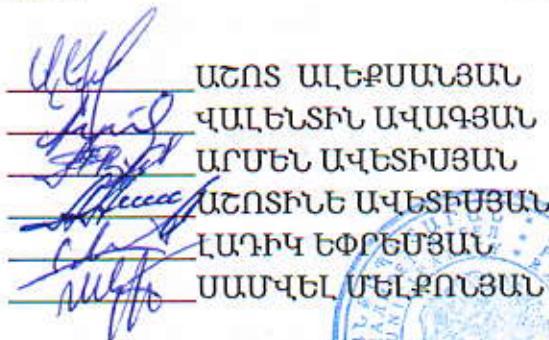 ԱՇՈՏ ԱԼԵՔՍԱՆՅԱՆ
ՎԱԼԵՆՏԻՆ ԱՎԱԳՅԱՆ
ԱՐՄԵՆ ԱՎԵՏԻՍՅԱՆ
ԱՇՈՏԻՆԵ ԱՎԵՏԻՍՅԱՆ
ԼԱԴԻԿ ԵՓՐԵՄՅԱՆ
ՍԱՄՎԵԼ ՄԵԼՔՈՆՅԱՆ